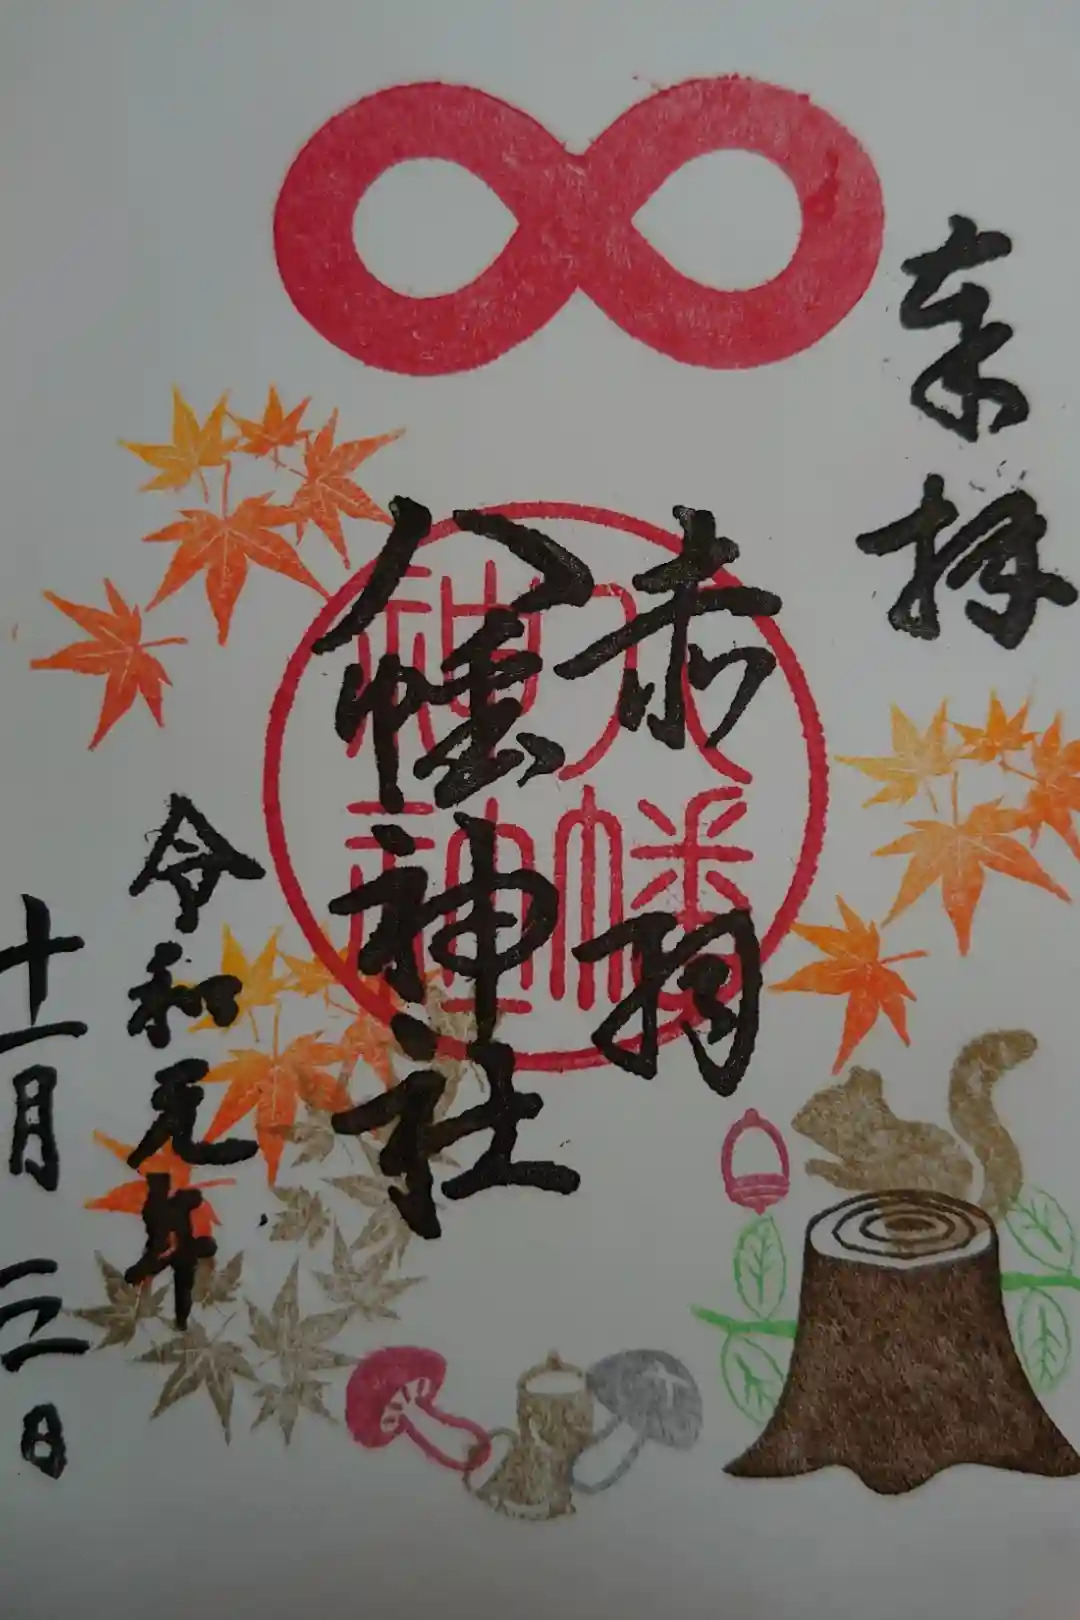 奉拝
赤羽
八幡神社
八幡
神社
令和元年
十一月
日